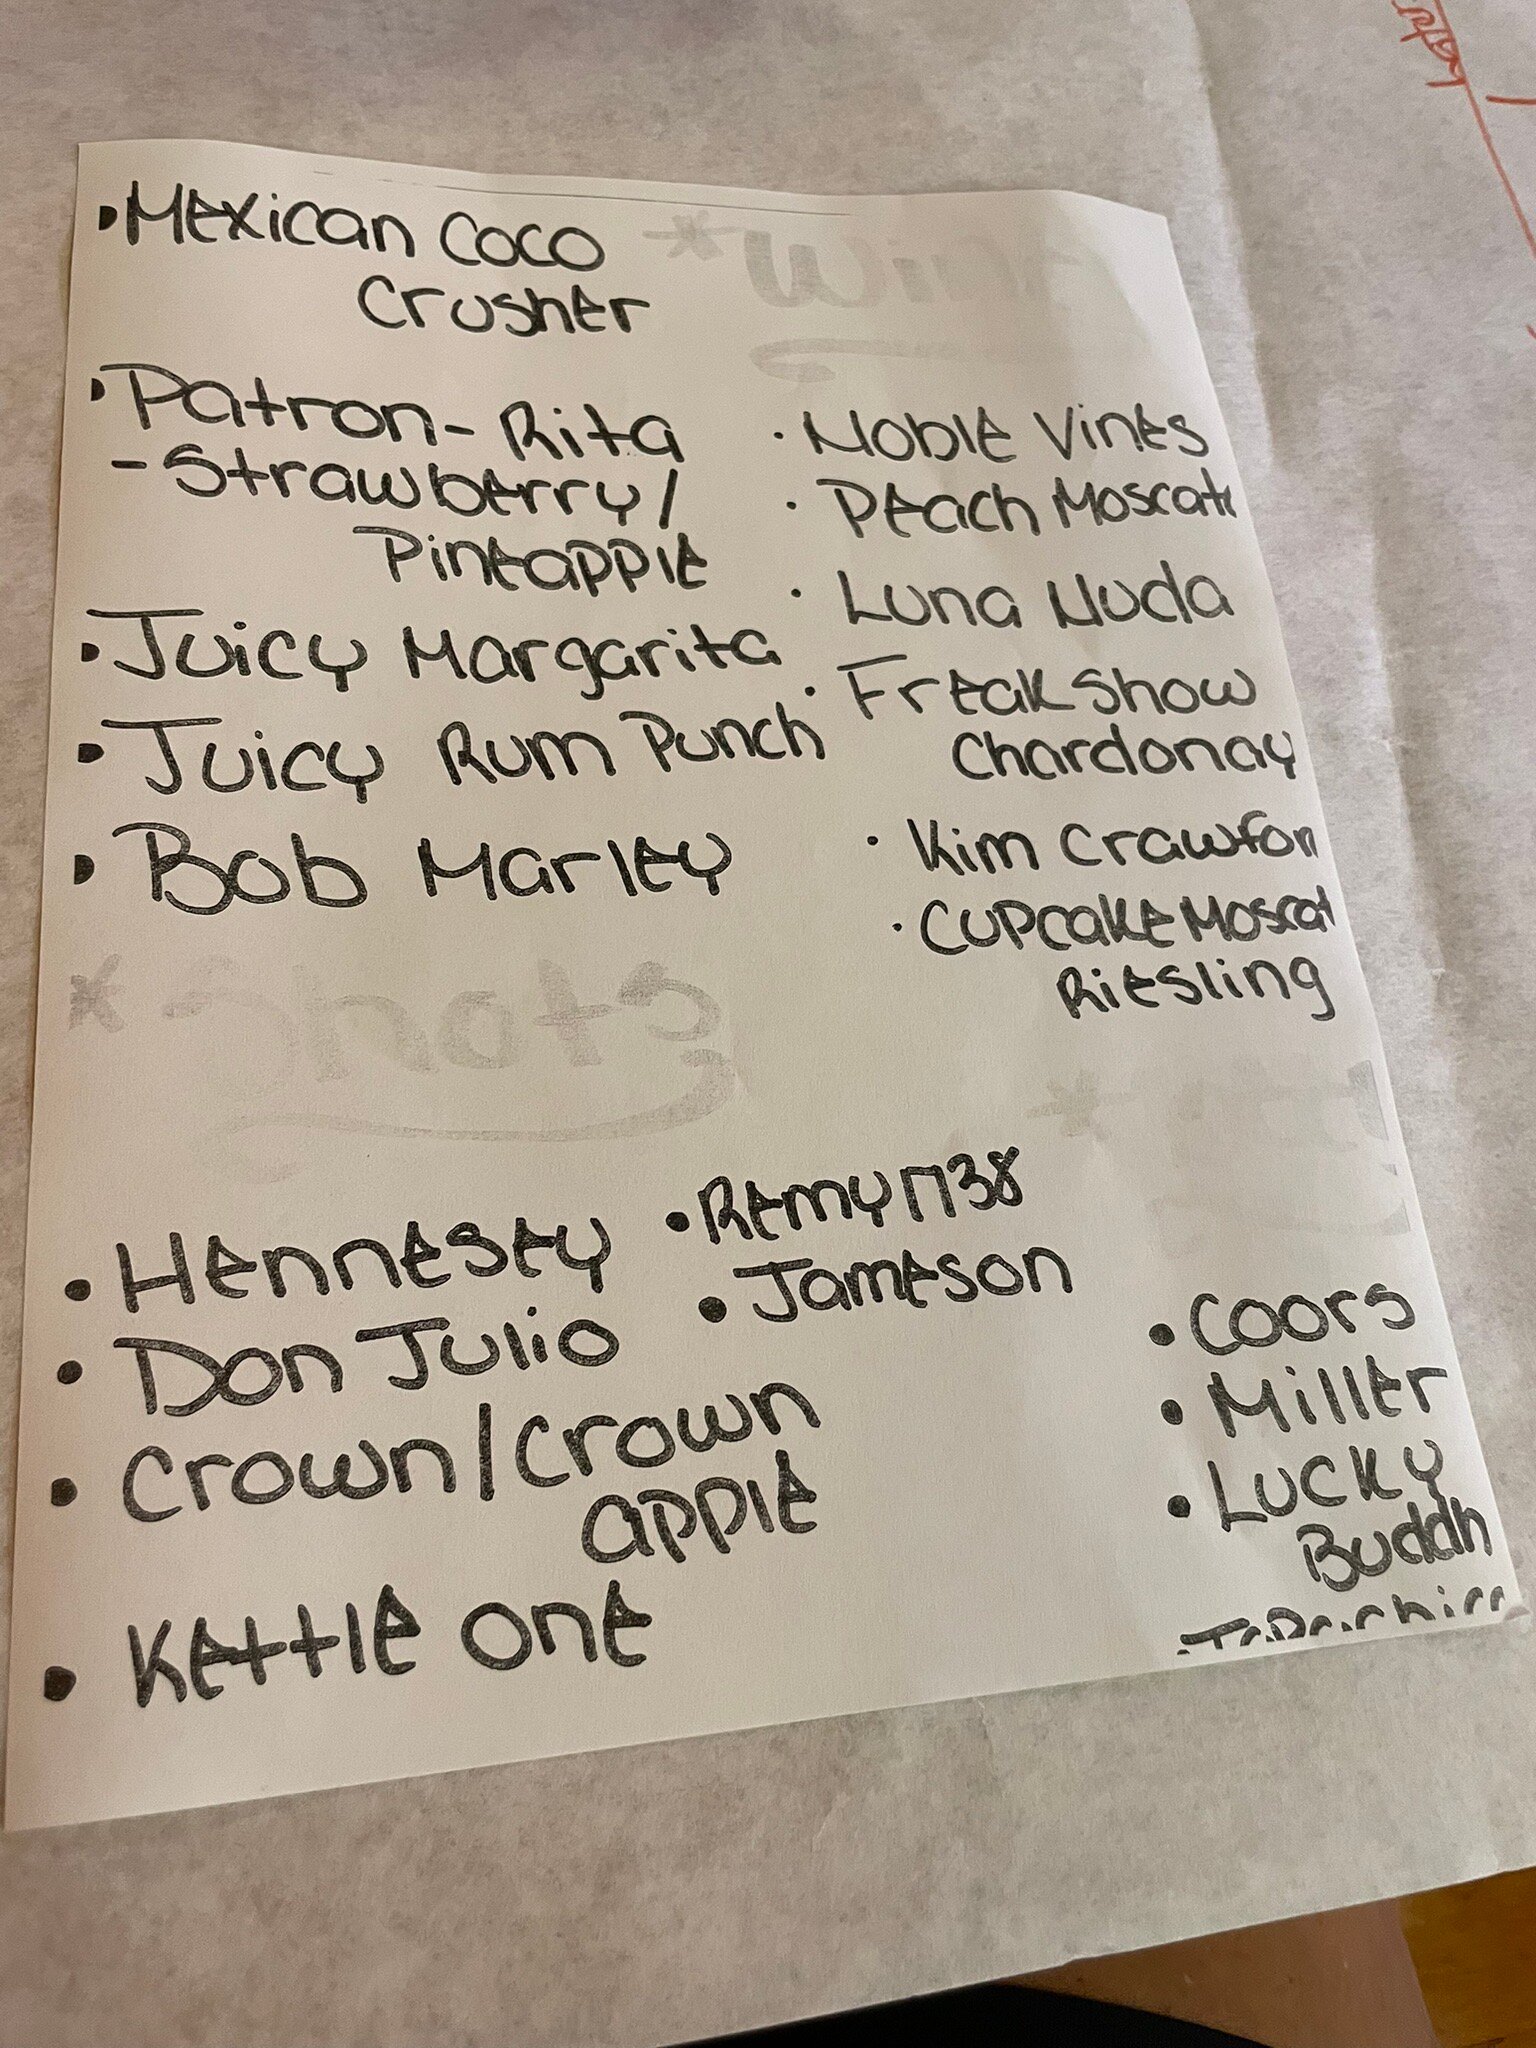 • Mexican Coco
Crusher
• Patron-Rita
- Strawberry/
Pineapple
• Juicy Margarita
• Juicy Rum Punch
• Bob Marley
• Noble Vines
• Peach Moscat
• Luna Nuda
• Freakshow
Chardonay
• Kim Crawfor
• Cupcake Moscat
Riesling
• Hennesey
• Don Julio
• Crown/Crown
apple
• Kettle One
• Remy 1738
• Jameson
• Coors
• Miller
• Lucky
Buddh